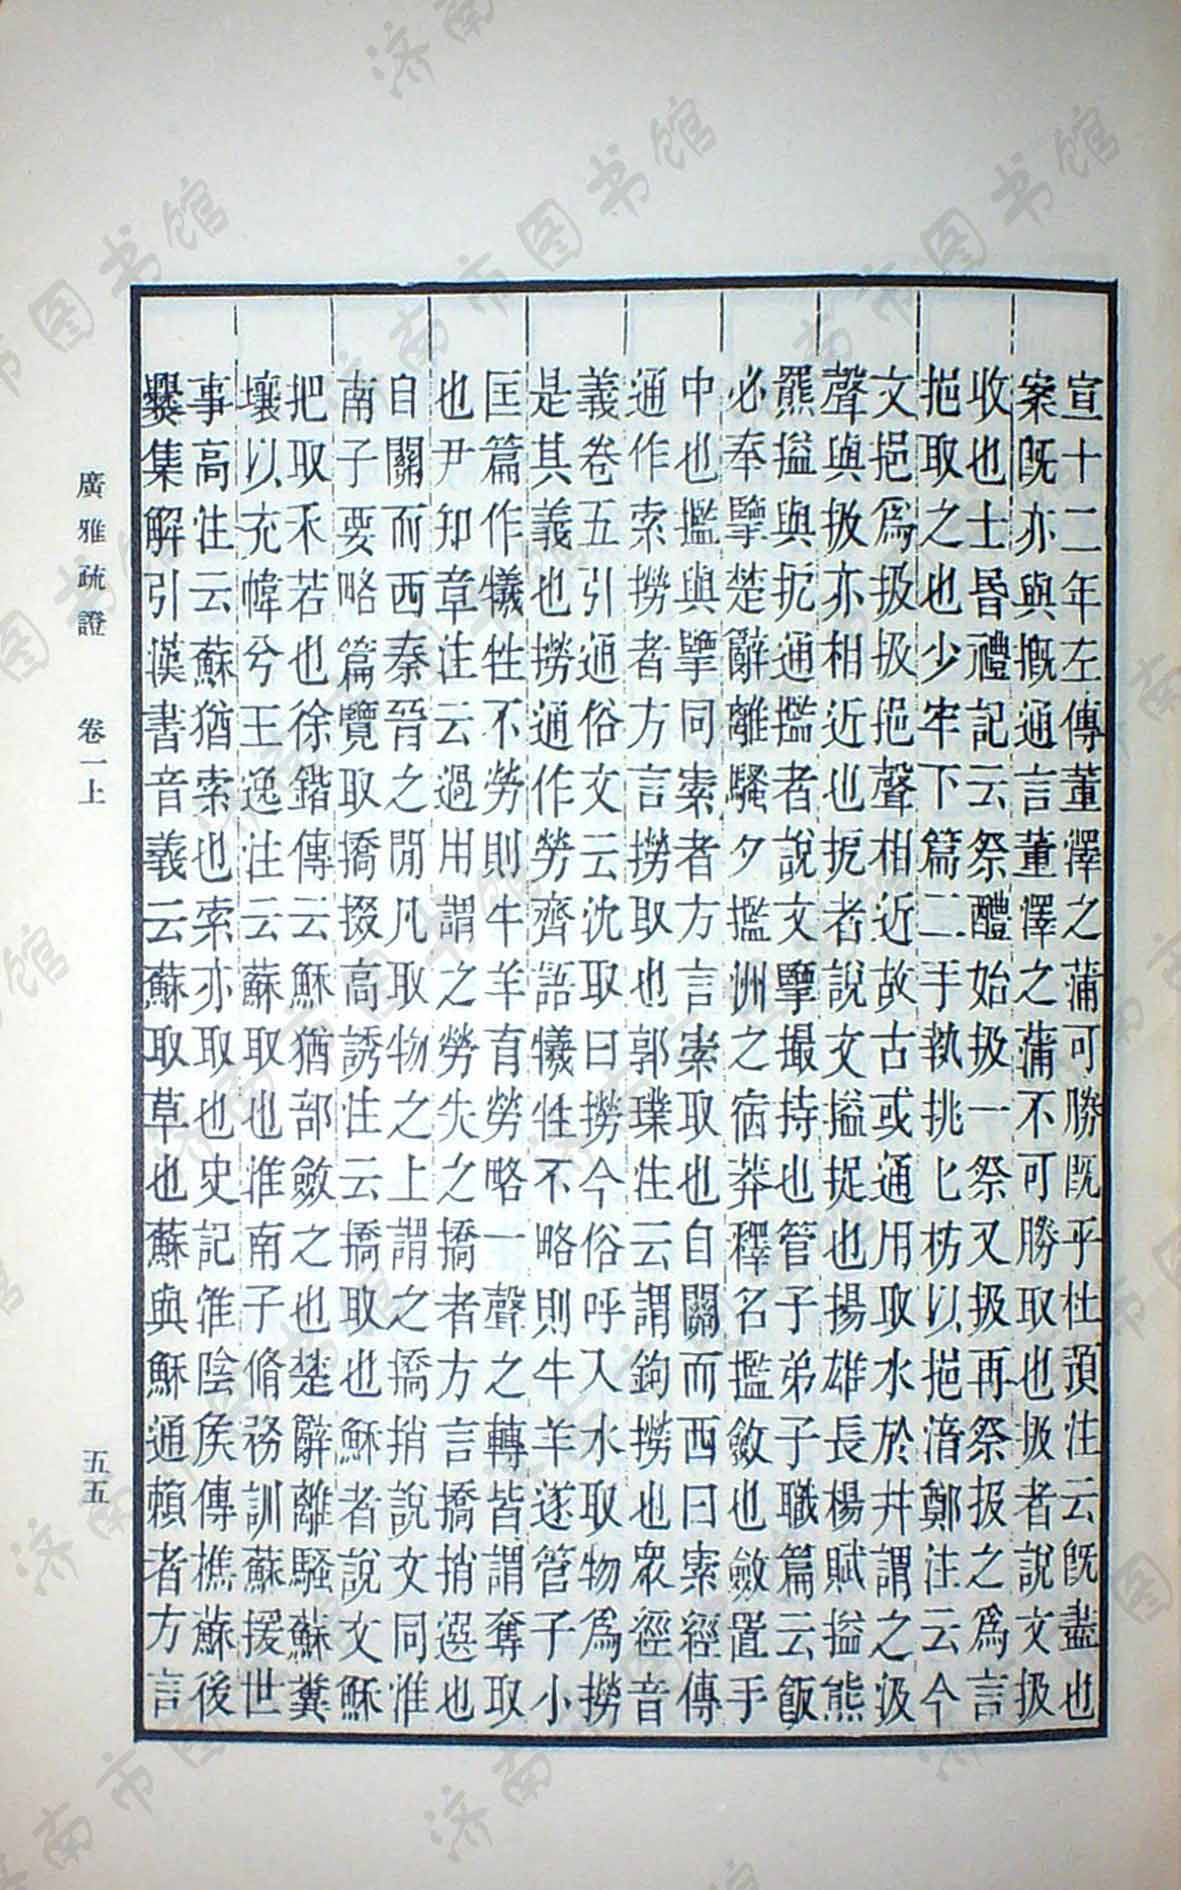 宣十二年左傳董澤之蒲可勝旣乎杜預注云旣盡也
案旣亦與摡通言董澤之蒲不可勝取也扱者說文扱
收也士昏禮記云祭醴始扱一祭又扱再祭扱之爲言
挹取之也少牢下篇二手執挑匕枋以挹湆鄭注云今
文挹爲扱扱挹聲相近故古或通用取水於井謂之汲
聲與扱亦相近也扼者說文搤捉也揚雄長楊賦搤熊
羆搤與扼通㩜者說文擥撮持也管子弟子職篇云飯
必奉擥楚辭離騷夕㩜洲之宿莽釋名㩜斂也斂置手
中也㩜與擥同索者方言索取也自關而西曰索經傳
通作索撈者方言撈取也郭璞注云謂鉤撈也眾經音
義卷五引通俗文云沈取曰撈今俗呼入水取物爲撈
是其義也撈通作勞齊語犧牲不略則牛羊遂管子小
匡篇作犧牲不勞則牛羊育勞略一聲之轉皆謂奪取
也尹知章注云過用謂之勞失之撟者方言撟捎選也
自關而西秦晉之閒凡取物之上謂之撟捎說文同淮
南子要略篇覽取撟掇高誘注云撟取也穌者說文穌
把取禾若也徐鍇傳云穌猶部斂之也楚辭離騷蘇糞
壤以充幃兮王逸注云蘇取也淮南子脩務訓蘇援世
事高注云蘇猶索也索亦取也史記淮陰矦傳樵蘇後
爨集解引漢書音義云蘇取草也蘇與穌通賴者方言
廣雅疏證　卷一上
五五
濟南市图书馆